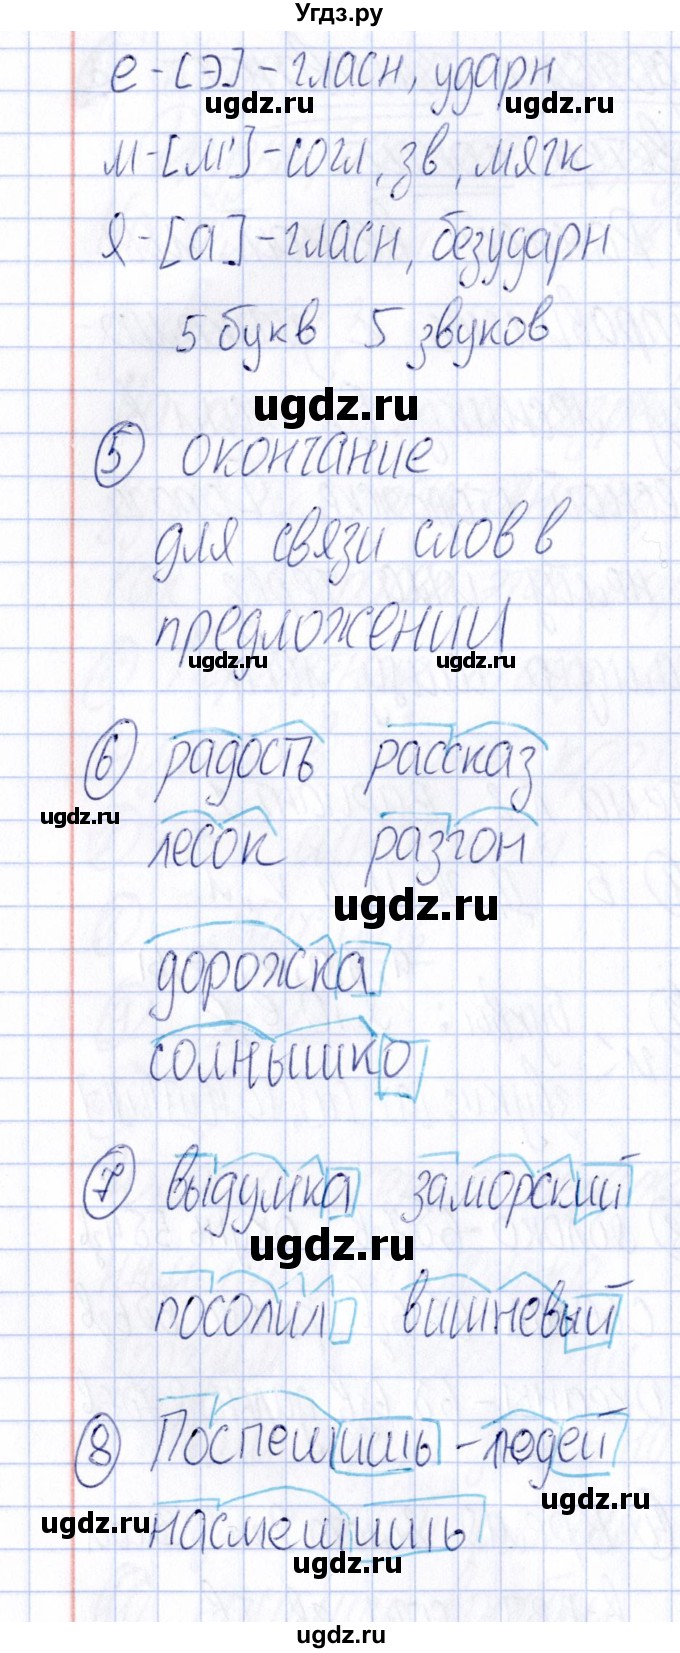 Угдз.ру
е-[э]-гласн, ударн
ugdz.ru ugdz.ru
м-[м']-согл, зв, мягк
я-[а]-гласн, безударн
5 букв 5 звуков
ugdz.ru
5 окончание
для связи слов в
предложении
ugdz.ru ugdz.ru
6 радость рассказ
ugdz.ru
лесок разгон
ugdz.ru
дорожка
солнышко
7 выдумка заморский
ugdz.ru
посолил вишневый
8 Поспешишь - людей
ugdz.ru
ugdz.ru
насмешишь
ugdz.ru
ugdz.ru